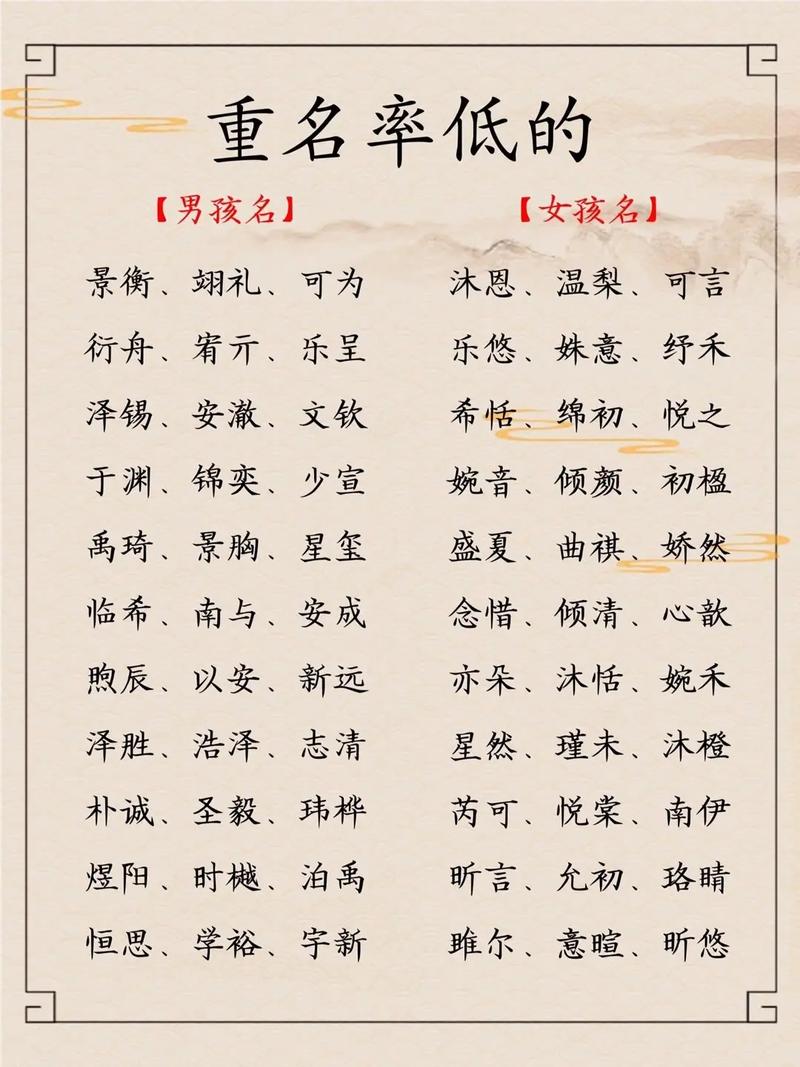 重名率低的
【男孩名】
景衡、翊礼、可为
衍舟、宥亓、乐呈
泽锡、安澈、文钦
于渊、锦奕、少宣
禹琦、景胸、星玺
临希、南与、安成
煦辰、以安、新远
泽胜、浩泽、志清
朴诚、圣毅、玮桦
煜阳、时樾、泊禹
恒思、学裕、宇新
【女孩名】
沐恩、温梨、可言
乐悠、姝意、纾禾
希恬、绵初、悦之
婉音、倾颜、初楹
盛夏、曲祺、娇然
念惜、倾清、心歆
亦朵、沐恬、婉禾
星然、瑾未、沐橙
芮可、悦棠、南伊
昕言、允初、珞晴
雎尔、意暄、昕悠